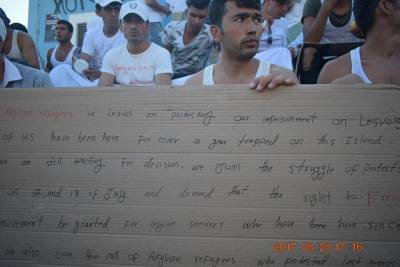 refugees in Lesvos are protesting our imprisonment on Lesvos
of us have been here for over a year trapped on this Island
still waiting for decision, we join the struggle of protests
on 17 and 18 of July and demand that the right to Free
movement be granted for asylum seekers who have been here since
also join the call of Afghan refugees who protested last week
2017-08-28 17-16